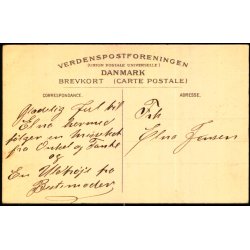 VERDENSPOSTFORENINGEN
(UNION POSTALE UNIVERSELLE)
DANMARK
BREVKORT (CARTE POSTALE)
CORRESPONDANCE.
ADRESSE.
Glædelig Jul til
Elna hermed
følger en
fra Onkel og Tante
og
En fra
Bedstemoder
Frk
Elna Jensen